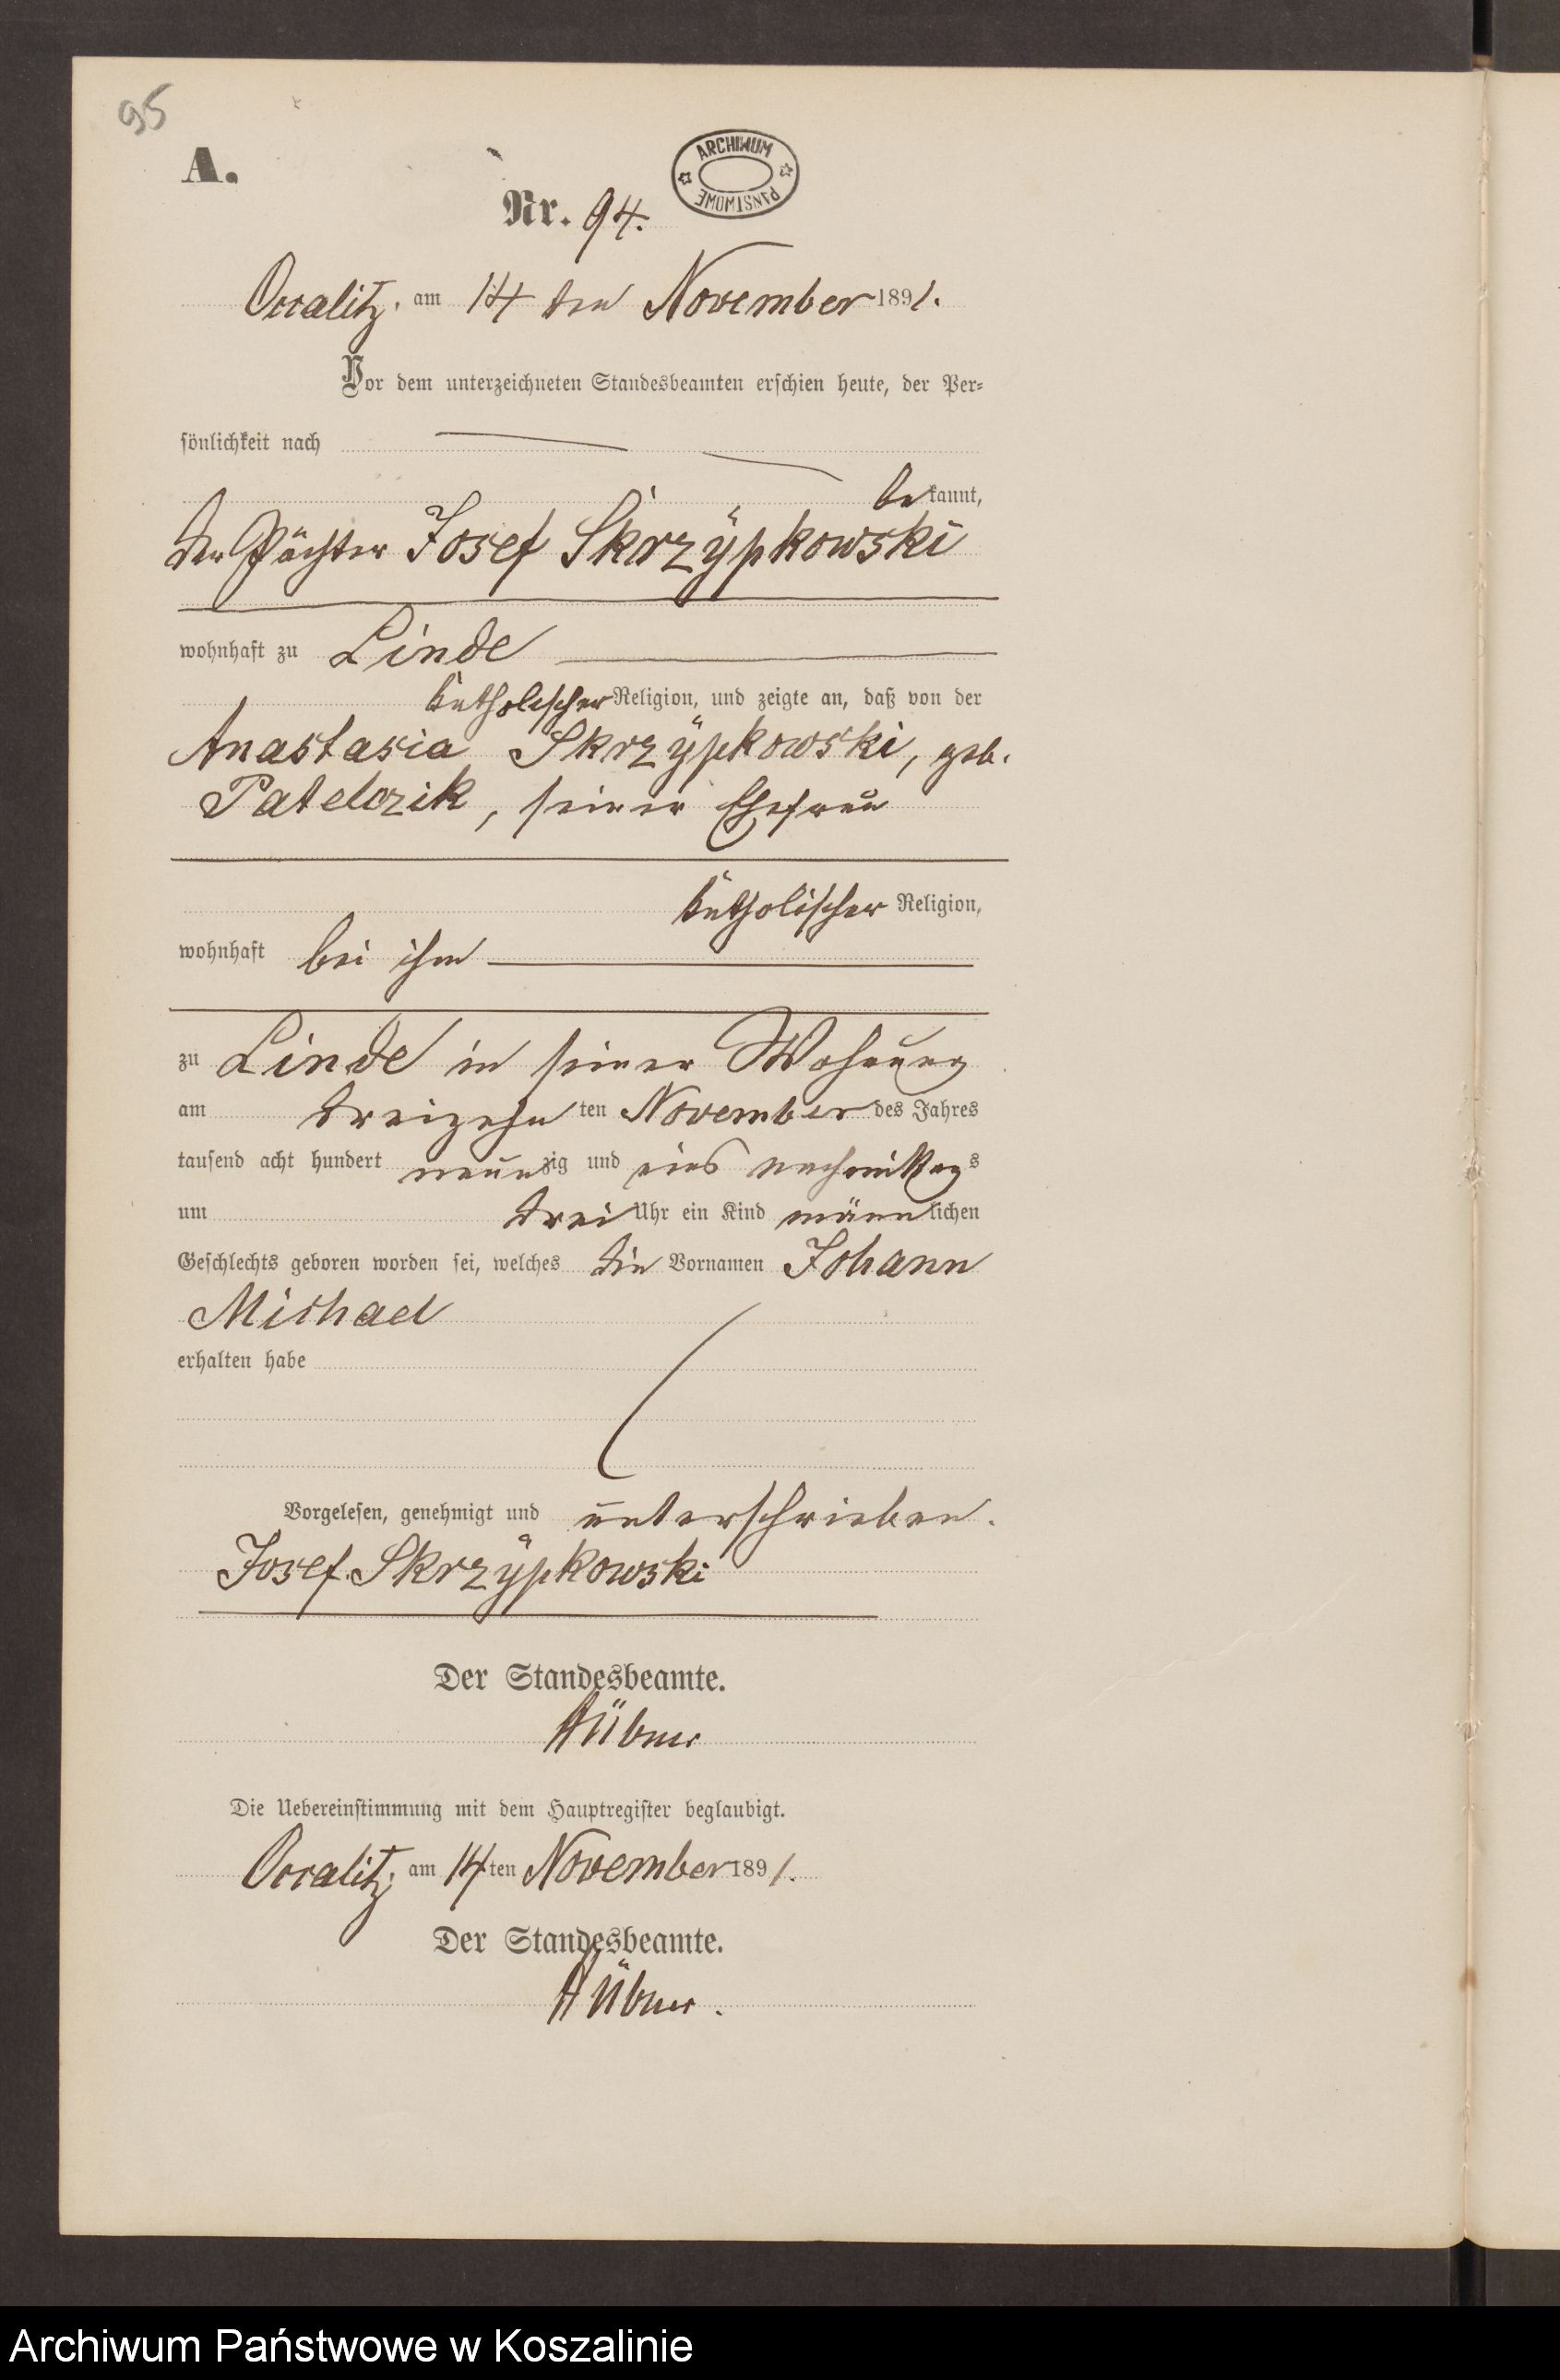 95
A.
ARCHIWUM PAŃSTWOWE
Nr. 94.
Occalitz, am 14 ten November 1891.
Vor dem unterzeichneten Standesbeamten erschien heute, der Per-
sönlichkeit nach
be kannt,
der Pächter Josef Skrzÿpkowski
wohnhaft zu Linde
katholischer Religion, und zeigte an, daß von der
Anastasia Skrzÿpkowski, geb.
Patelczik, seiner Ehefrau
katholischer Religion,
wohnhaft bei ihm
zu Linde in seiner Wohnung
am dreizehn ten November des Jahres
tausend acht hundert neun zig und eins nachmittags
um drei Uhr ein Kind männ lichen
Geschlechts geboren worden sei, welches die Vornamen Johann
Michael
erhalten habe
Vorgelesen, genehmigt und unterschrieben.
Josef Skrzÿpkowski
Der Standesbeamte.
Hübner
Die Uebereinstimmung mit dem Hauptregister beglaubigt.
Occalitz, am 14 ten November 1891.
Der Standesbeamte.
Hübner.
Archiwum Państwowe w Koszalinie